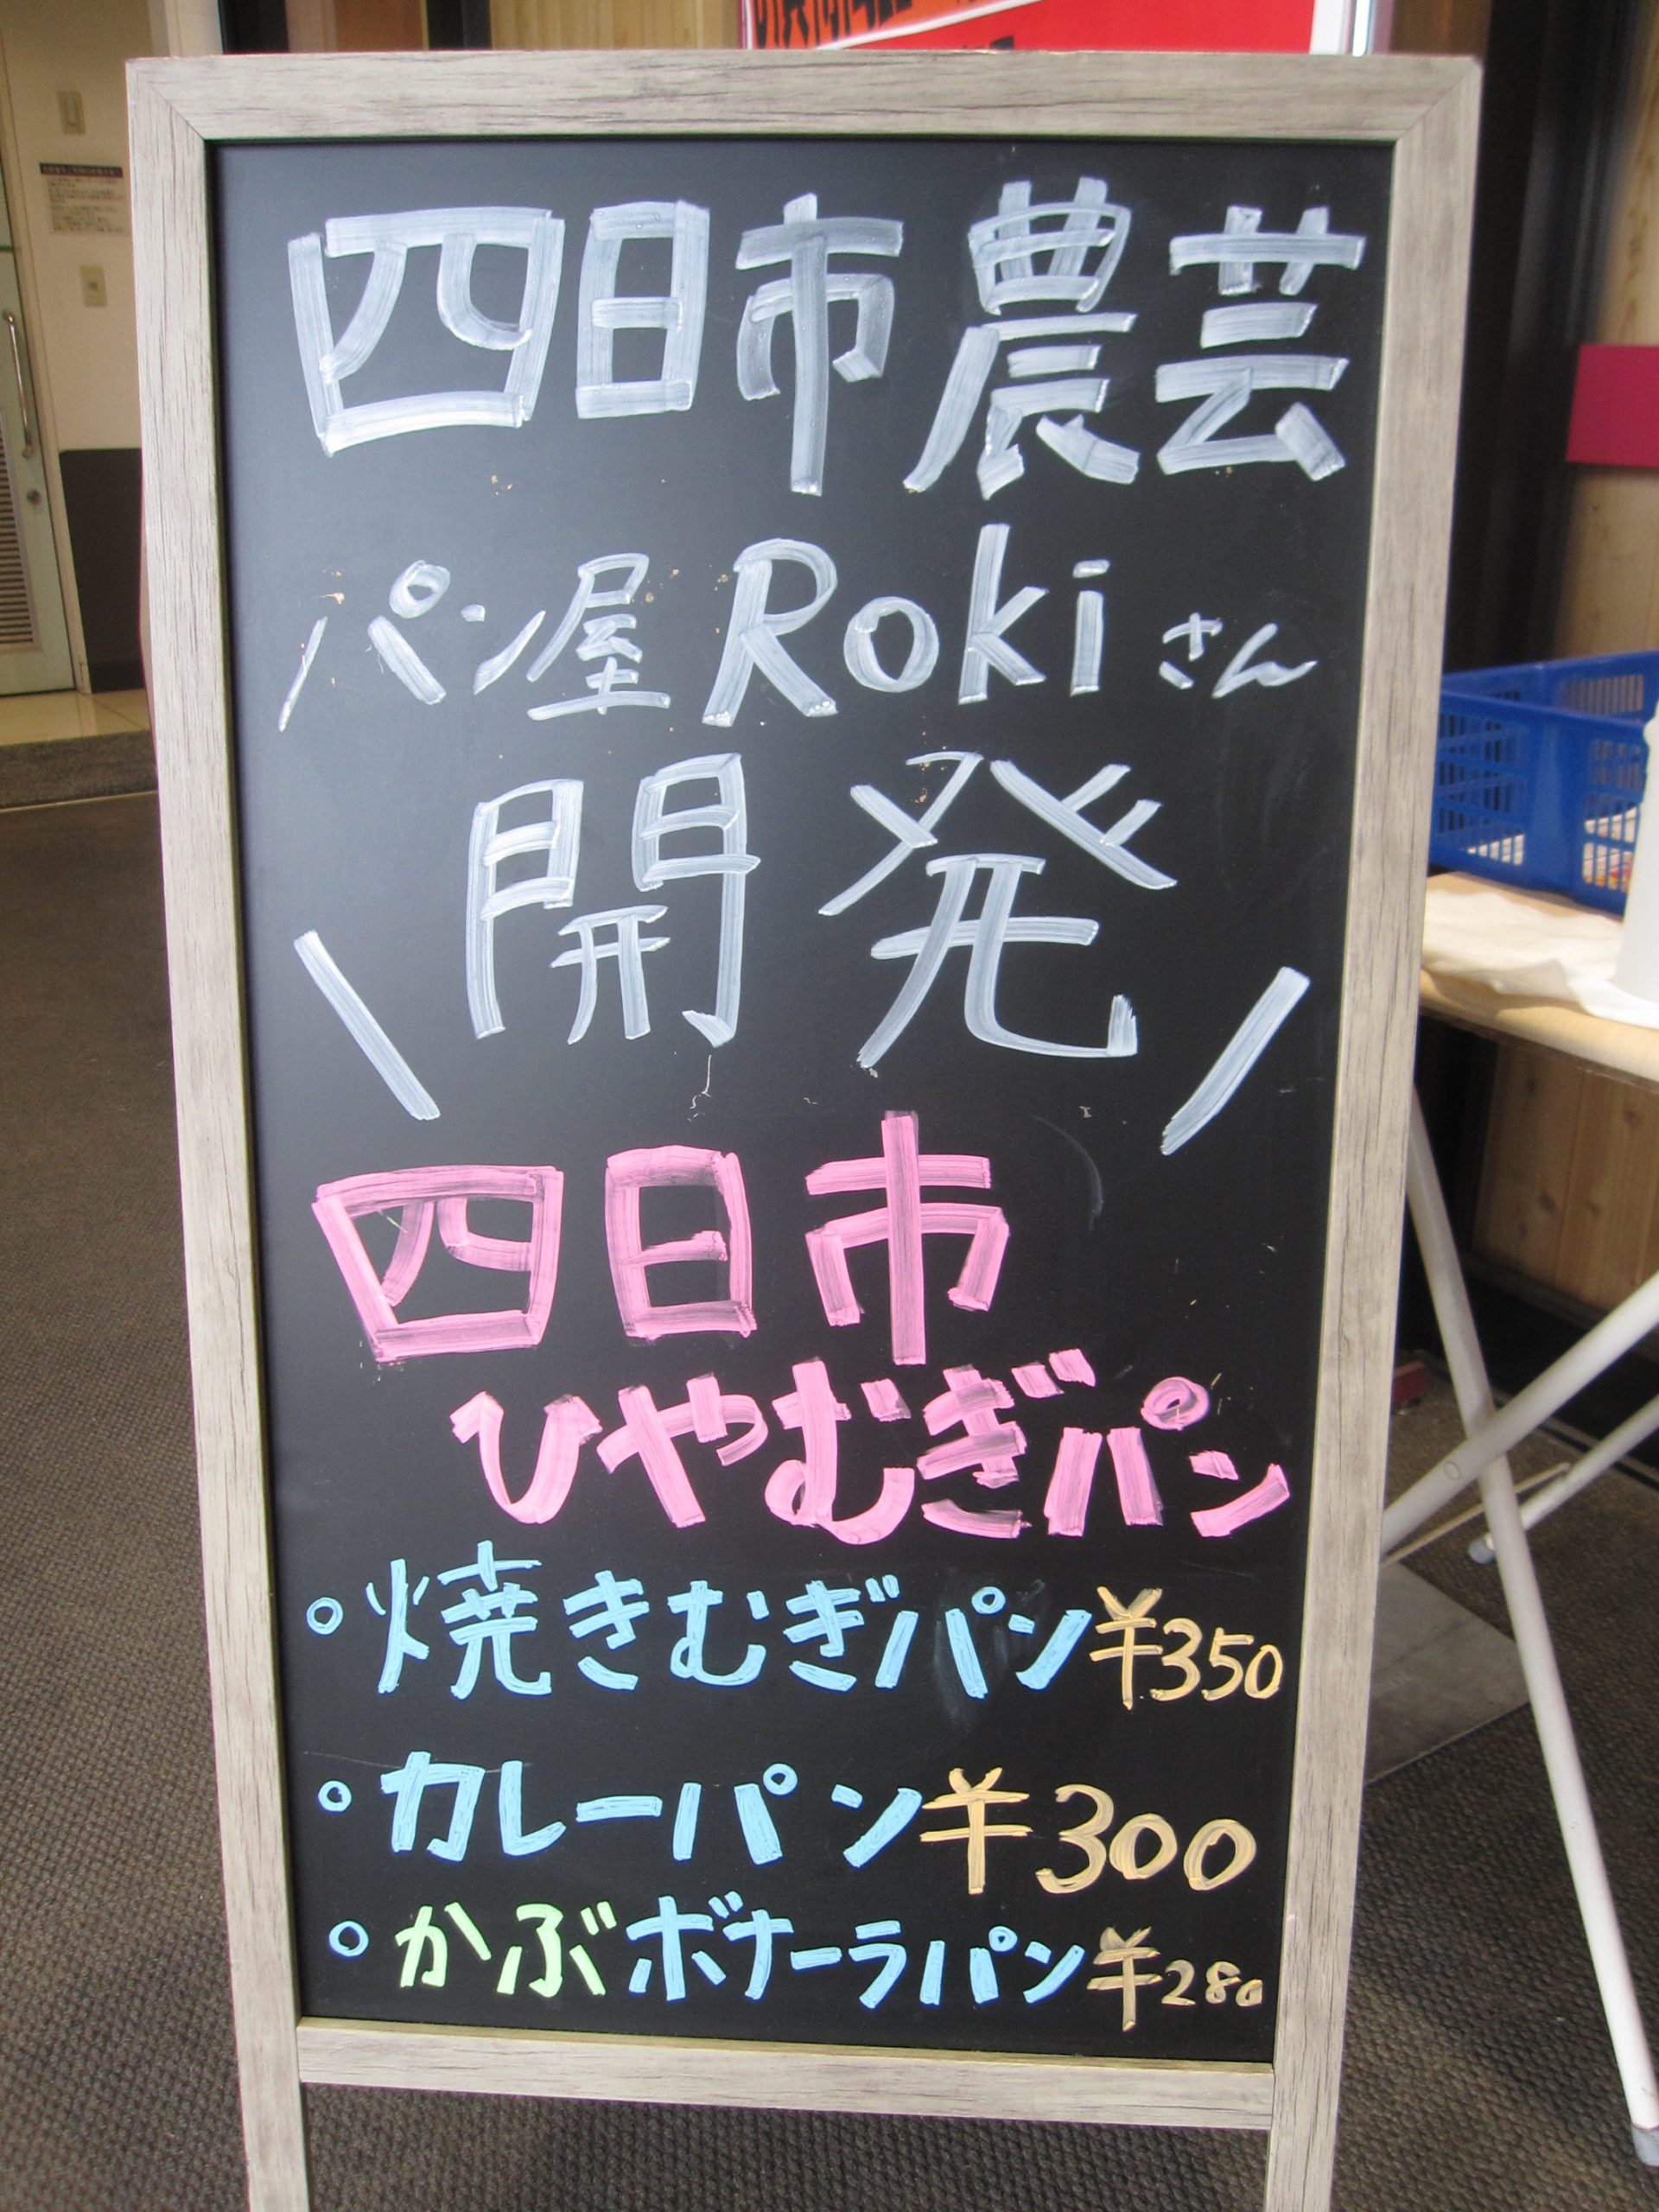 四日市農芸
パン屋Rokiさん
\開発/
四日市
ひやむぎパン
・焼きむぎパン¥350
・カレーパン¥300
・かぶボナーラパン¥280